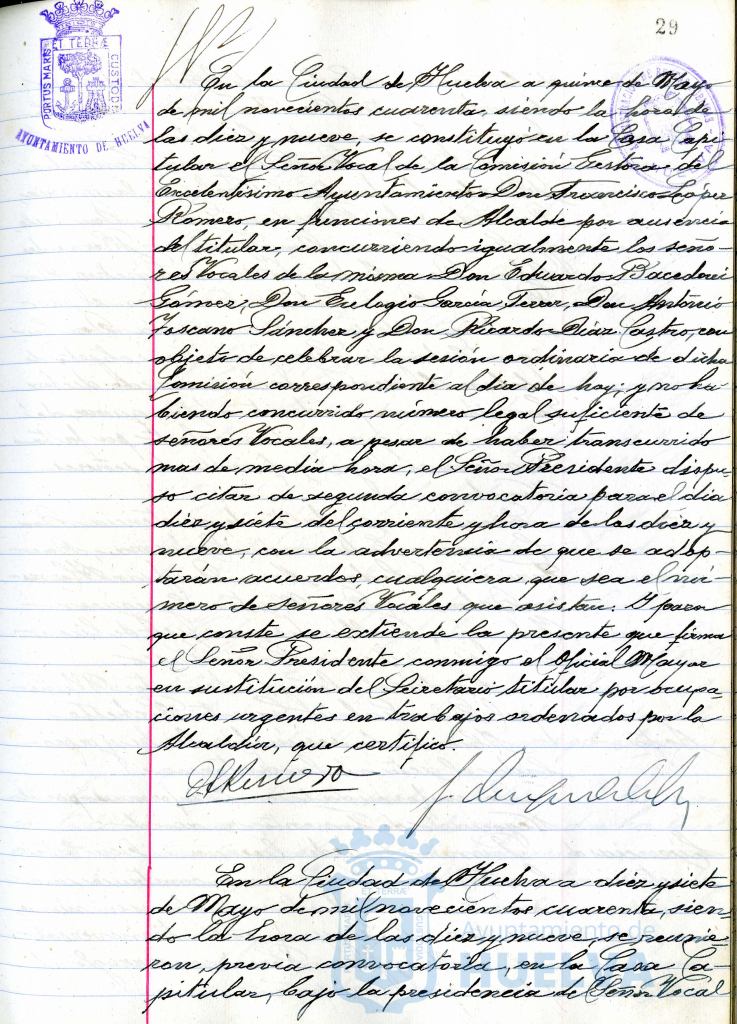 29
PORTUS MARIS ET TERRÆ CUSTODIA
AYUNTAMIENTO DE HUELVA
En la Ciudad de Huelva a quince de Mayo
de mil novecientos cuarenta, siendo la hora de
las diez y nueve, se constituyó en la Casa Capi-
tular el Señor Vocal de la Comisión Gestora del
Excelentísimo Ayuntamiento Don Francisco López
Romero, en funciones de Alcalde por ausencia
del titular, concurriendo igualmente los seño-
res Vocales de la misma Don Eduardo
Gómez, Don Eulogio García Ferrer, Don Antonio
Toscano Sánchez y Don Ricardo Díaz Castro, con
objeto de celebrar la sesión ordinaria de dicha
Comisión correspondiente al dia de hoy; y no ha-
biendo concurrido número legal suficiente de
señores Vocales, a pesar de haber transcurrido
mas de media hora, el Señor Presidente dispu-
so citar de segunda convocatoria para el dia
diez y siete del corriente y hora de las diez y
nueve, con la advertencia de que se adop-
tarán acuerdos, cualquiera que sea el nú-
mero de señores Vocales que asistan. Y para
que conste se extiende la presente que firma
el Señor Presidente conmigo el Oficial Mayor
en sustitución del Secretario titular por ocupa-
ciones urgentes en trabajos ordenados por la
Alcaldía, que certifico.
En la Ciudad de Huelva a diez y siete
de Mayo de mil novecientos cuarenta, sien-
do la hora de las diez y nueve, se reunie-
ron, previa convocatoria, en la Casa Ca-
pitular, bajo la presidencia del Señor Vocal
Ayuntamiento de
HUELVA